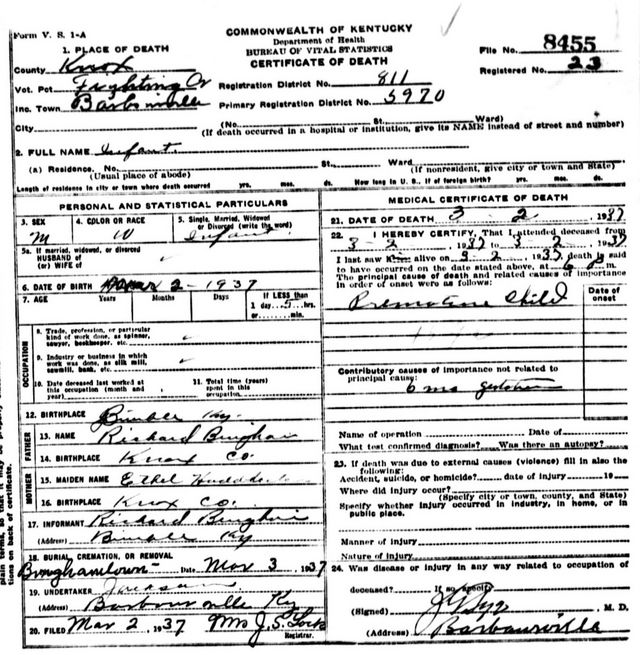 Form V. S. 1-A
COMMONWEALTH OF KENTUCKY
Department of Health
BUREAU OF VITAL STATISTICS
CERTIFICATE OF DEATH
File No. 8455
Registered No. 23
1. PLACE OF DEATH
County Knox
Vot. Pct Fighting Cr
Inc. Town Barbourville
City
Registration District No. 811
Primary Registration District No. 5970
(No. St., Ward)
(If death occurred in a hospital or institution, give its NAME instead of street and number)
2. FULL NAME Infant
(a) Residence. No. St., Ward
(Usual place of abode) (If nonresident, give city or town and State)
Length of residence in city or town where death occurred yrs. mos. ds. How long in U. S., if of foreign birth? yrs. mos. ds.
PERSONAL AND STATISTICAL PARTICULARS
3. SEX M
4. COLOR OR RACE W
5. Single, Married, Widowed or Divorced (write the word) Infant
5a. If married, widowed, or divorced
HUSBAND OF
(or) WIFE of
6. DATE OF BIRTH Mar 2 - 1937
7. AGE Years Months Days If LESS than
1 day 5 hrs.
or min.
OCCUPATION
8. Trade, profession, or particular
kind of work done, as spinner,
sawyer, bookkeeper, etc.
9. Industry or business in which
work was done, as silk mill,
sawmill, bank, etc.
10. Date deceased last worked at
this occupation (month and
year)
11. Total time (years)
spent in this
occupation
12. BIRTHPLACE Bimble Ky.
FATHER
13. NAME Richard Bingham
14. BIRTHPLACE Knox Co.
MOTHER
15. MAIDEN NAME Ethel
16. BIRTHPLACE Knox Co.
17. INFORMANT Richard Bingham
(Address) Bimble Ky
18. BURIAL, CREMATION, OR REMOVAL
Binghamtown Date Mar 3 1937
19. UNDERTAKER
(Address) Barbourville Ky
20. FILED Mar 2, 1937 Mrs J. S. Lock
Registrar.
MEDICAL CERTIFICATE OF DEATH
21. DATE OF DEATH 3 2 1937
22. I HEREBY CERTIFY, That I attended deceased from
3-2, 1937 to 3-2, 1937
I last saw alive on 3-2, 1937, death is said
to have occurred on the date stated above, at 6 p m.
The principal cause of death and related causes of importance
in order of onset were as follows:
Date of onset
Premature Child
Contributory causes of importance not related to
principal cause:
6 mo gestation
Name of operation Date of
What test confirmed diagnosis? Was there an autopsy?
23. If death was due to external causes (violence) fill in also the
following:
Accident, suicide, or homicide? date of injury 19
Where did injury occur?
(Specify city or town, county, and State)
Specify whether injury occurred in industry, in home, or in
public place.
Manner of injury
Nature of injury
24. Was disease or injury in any way related to occupation of
deceased? If so specify
(Signed) M. D.
(Address) Barbourville